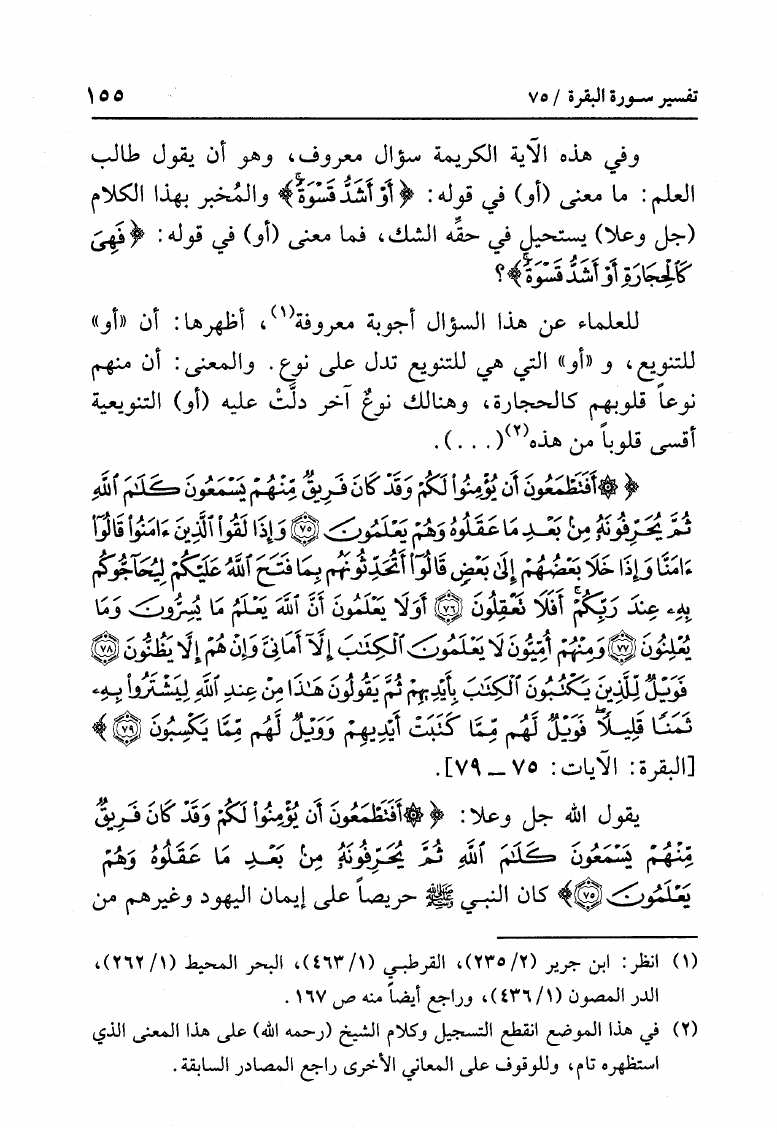 تفسير سورة البقرة / ٧٥
١٥٥
وفي هذه الآية الكريمة سؤال معروف، وهو أن يقول طالب
العلم: ما معنى (أو) في قوله: ﴿أَوْ أَشَدُّ قَسْوَةً﴾ والمُخبر بهذا الكلام
(جل وعلا) يستحيل في حقِّه الشك، فما معنى (أو) في قوله: ﴿فَهِيَ
كَالْحِجَارَةِ أَوْ أَشَدُّ قَسْوَةً﴾؟
للعلماء عن هذا السؤال أجوبة معروفة(١)، أظهرها: أن «أو»
للتنويع، و «أو» التي هي للتنويع تدل على نوع. والمعنى: أن منهم
نوعاً قلوبهم كالحجارة، وهنالك نوعٌ آخر دلَّتْ عليه (أو) التنويعية
أقسى قلوباً من هذه(٢)(. . .).
﴿۞ أَفَتَطْمَعُونَ أَن يُؤْمِنُوا۟ لَكُمْ وَقَدْ كَانَ فَرِيقٌ مِّنْهُمْ يَسْمَعُونَ كَلَٰمَ ٱللَّهِ
ثُمَّ يُحَرِّفُونَهُۥ مِنۢ بَعْدِ مَا عَقَلُوهُ وَهُمْ يَعْلَمُونَ ٧٥ وَإِذَا لَقُوا۟ ٱلَّذِينَ ءَامَنُوا۟ قَالُوٓا۟
ءَامَنَّا وَإِذَا خَلَا بَعْضُهُمْ إِلَىٰ بَعْضٍ قَالُوٓا۟ أَتُحَدِّثُونَهُم بِمَا فَتَحَ ٱللَّهُ عَلَيْكُمْ لِيُحَآجُّوكُم
بِهِۦ عِندَ رَبِّكُمْ ۚ أَفَلَا تَعْقِلُونَ ٧٦ أَوَلَا يَعْلَمُونَ أَنَّ ٱللَّهَ يَعْلَمُ مَا يُسِرُّونَ وَمَا
يُعْلِنُونَ ٧٧ وَمِنْهُمْ أُمِّيُّونَ لَا يَعْلَمُونَ ٱلْكِتَٰبَ إِلَّآ أَمَانِىَّ وَإِنْ هُمْ إِلَّا يَظُنُّونَ ٧٨
فَوَيْلٌ لِّلَّذِينَ يَكْتُبُونَ ٱلْكِتَٰبَ بِأَيْدِيهِمْ ثُمَّ يَقُولُونَ هَٰذَا مِنْ عِندِ ٱللَّهِ لِيَشْتَرُوا۟ بِهِۦ
ثَمَنًا قَلِيلًا ۖ فَوَيْلٌ لَّهُم مِّمَّا كَتَبَتْ أَيْدِيهِمْ وَوَيْلٌ لَّهُم مِّمَّا يَكْسِبُونَ ٧٩﴾
[البقرة: الآيات: ٧٥ ــ ٧٩].
يقول الله جل وعلا: ﴿۞ أَفَتَطْمَعُونَ أَن يُؤْمِنُوا۟ لَكُمْ وَقَدْ كَانَ فَرِيقٌ
مِّنْهُمْ يَسْمَعُونَ كَلَٰمَ ٱللَّهِ ثُمَّ يُحَرِّفُونَهُۥ مِنۢ بَعْدِ مَا عَقَلُوهُ وَهُمْ
يَعْلَمُونَ ٧٥﴾ كان النبي ﷺ حريصاً على إيمان اليهود وغيرهم من
(١) انظر: ابن جرير (٢/ ٢٣٥)، القرطبي (١/ ٤٦٣)، البحر المحيط (١/ ٢٦٢)،
الدر المصون (١/ ٤٣٦)، وراجع أيضاً منه ص ١٦٧.
(٢) في هذا الموضع انقطع التسجيل وكلام الشيخ (رحمه الله) على هذا المعنى الذي
استظهره تام، وللوقوف على المعاني الأخرى راجع المصادر السابقة.